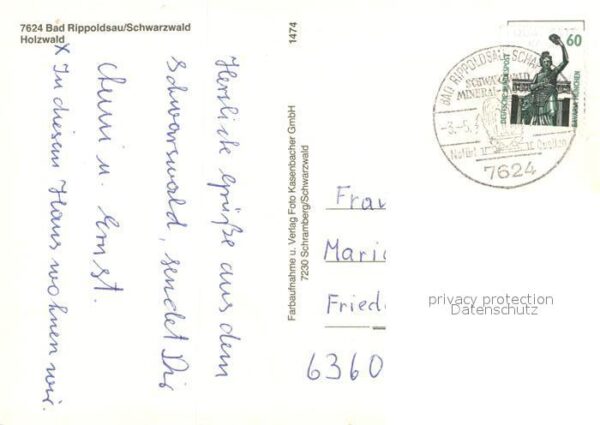 7624 Bad Rippoldsau/Schwarzwald
Holzwald
Herzliche Grüße aus dem
Schwarzwald, sendet Dir
Anni u. Ernst.
x In diesem Haus wohnen wir.
1474
Farbaufnahme u. Verlag Foto Kasenbacher GmbH
7230 Schramberg/Schwarzwald
60
DEUTSCHE BUNDESPOST
BAVARIA MÜNCHEN
BAD RIPPOLDSAU-SCHAP
SCHWARZWALD
MINERAL-
-3.-5.
Quellen
7624
Frau
Maria
Friede
6360
privacy protection
Datenschutz